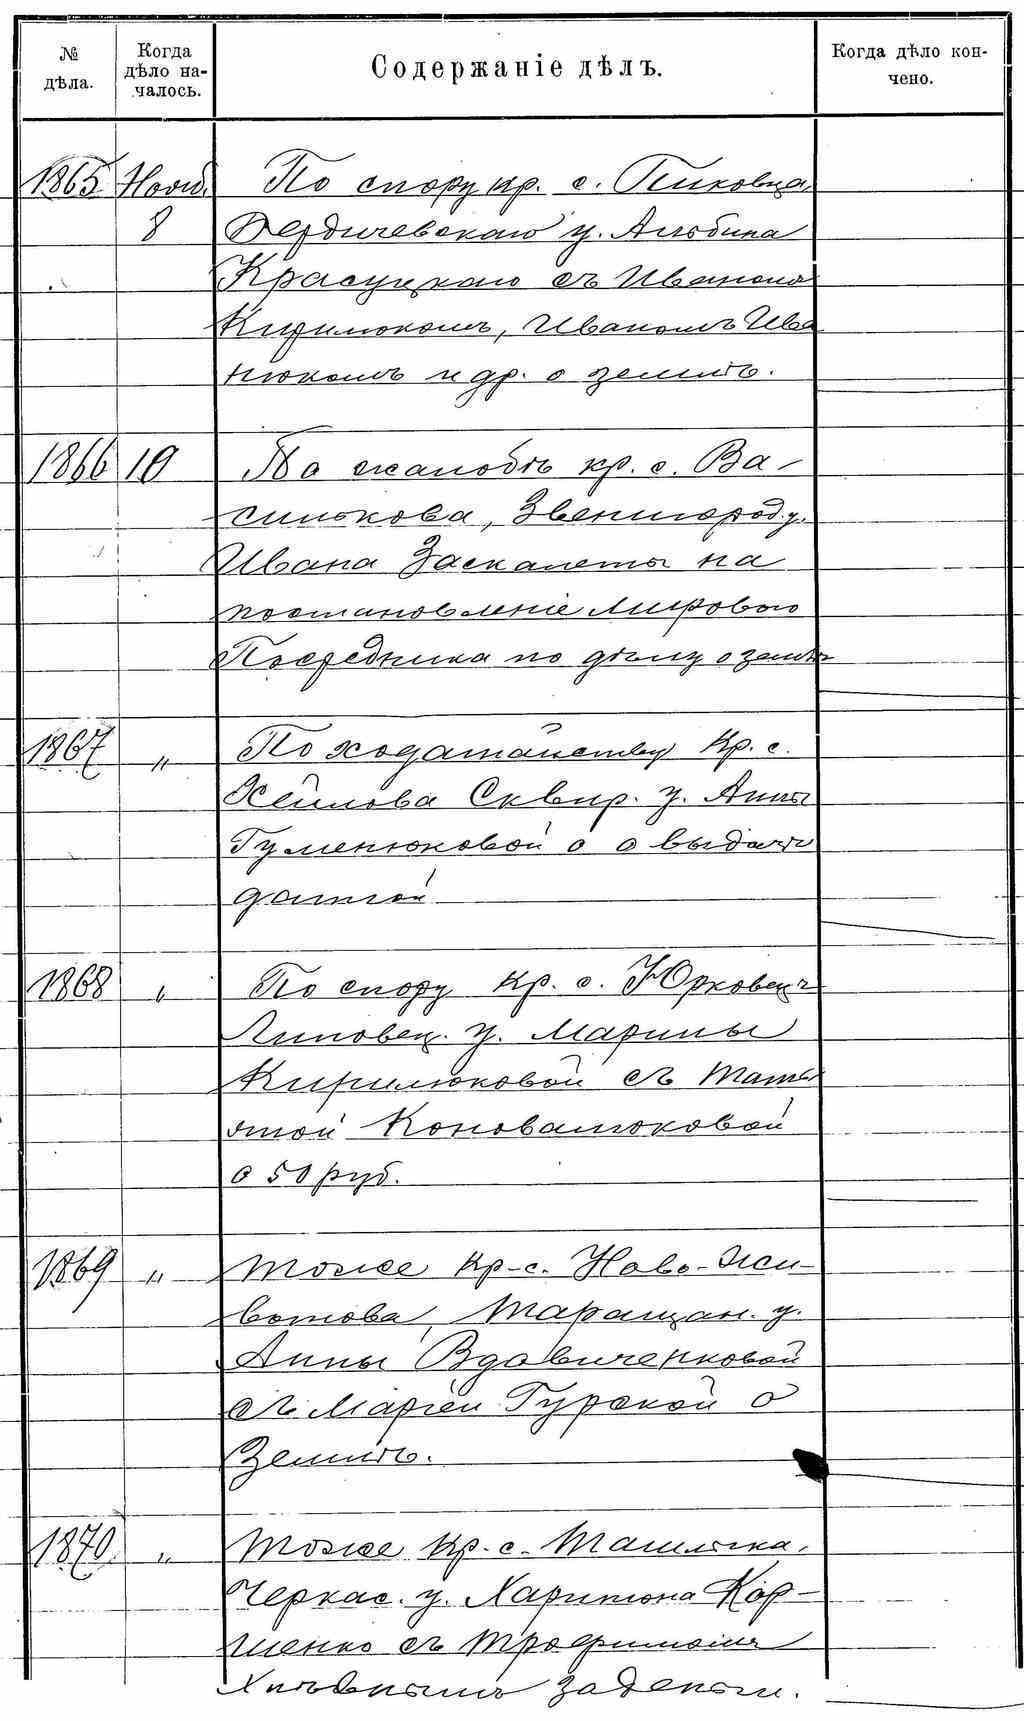 № дѣла.
Когда дѣло на-
чалось.
Содержаніе дѣлъ.
Когда дѣло кон-
чено.
1865 Нояб. По спору кр. с. Пиковца,
8 Бердичевскаго у. Альбина
Красуцкаго съ Иваномъ
Кирилюкомъ, Иваномъ Ива
нюкомъ и др. о землѣ.
1866 10 По жалобѣ кр. с. Ва-
силькова, Звенигород. у.
Ивана Заскалеты на
постановленіе Мирового
Посредника по дѣлу о землѣ
1867 „ По ходатайству Кр. с.
Хейлова Сквир. у. Анны
Гуменюковой о о выдачѣ
данной
1868 „ По спору кр. с. Юрковецъ
Липовец. у. Марины
Кирилюковой съ Татья
ной Коновалюковой
о 50 руб.
1869 „ тоже кр-с. Ново-Жи-
вотова, Таращан. у.
Анны Вдовиченковой
съ Маріей Гурской о
Землѣ.
1870 „ тоже кр. с. Ташлыка,
Черкас. у. Харитона Кор-
шенко съ Трофимомъ
за деньги.